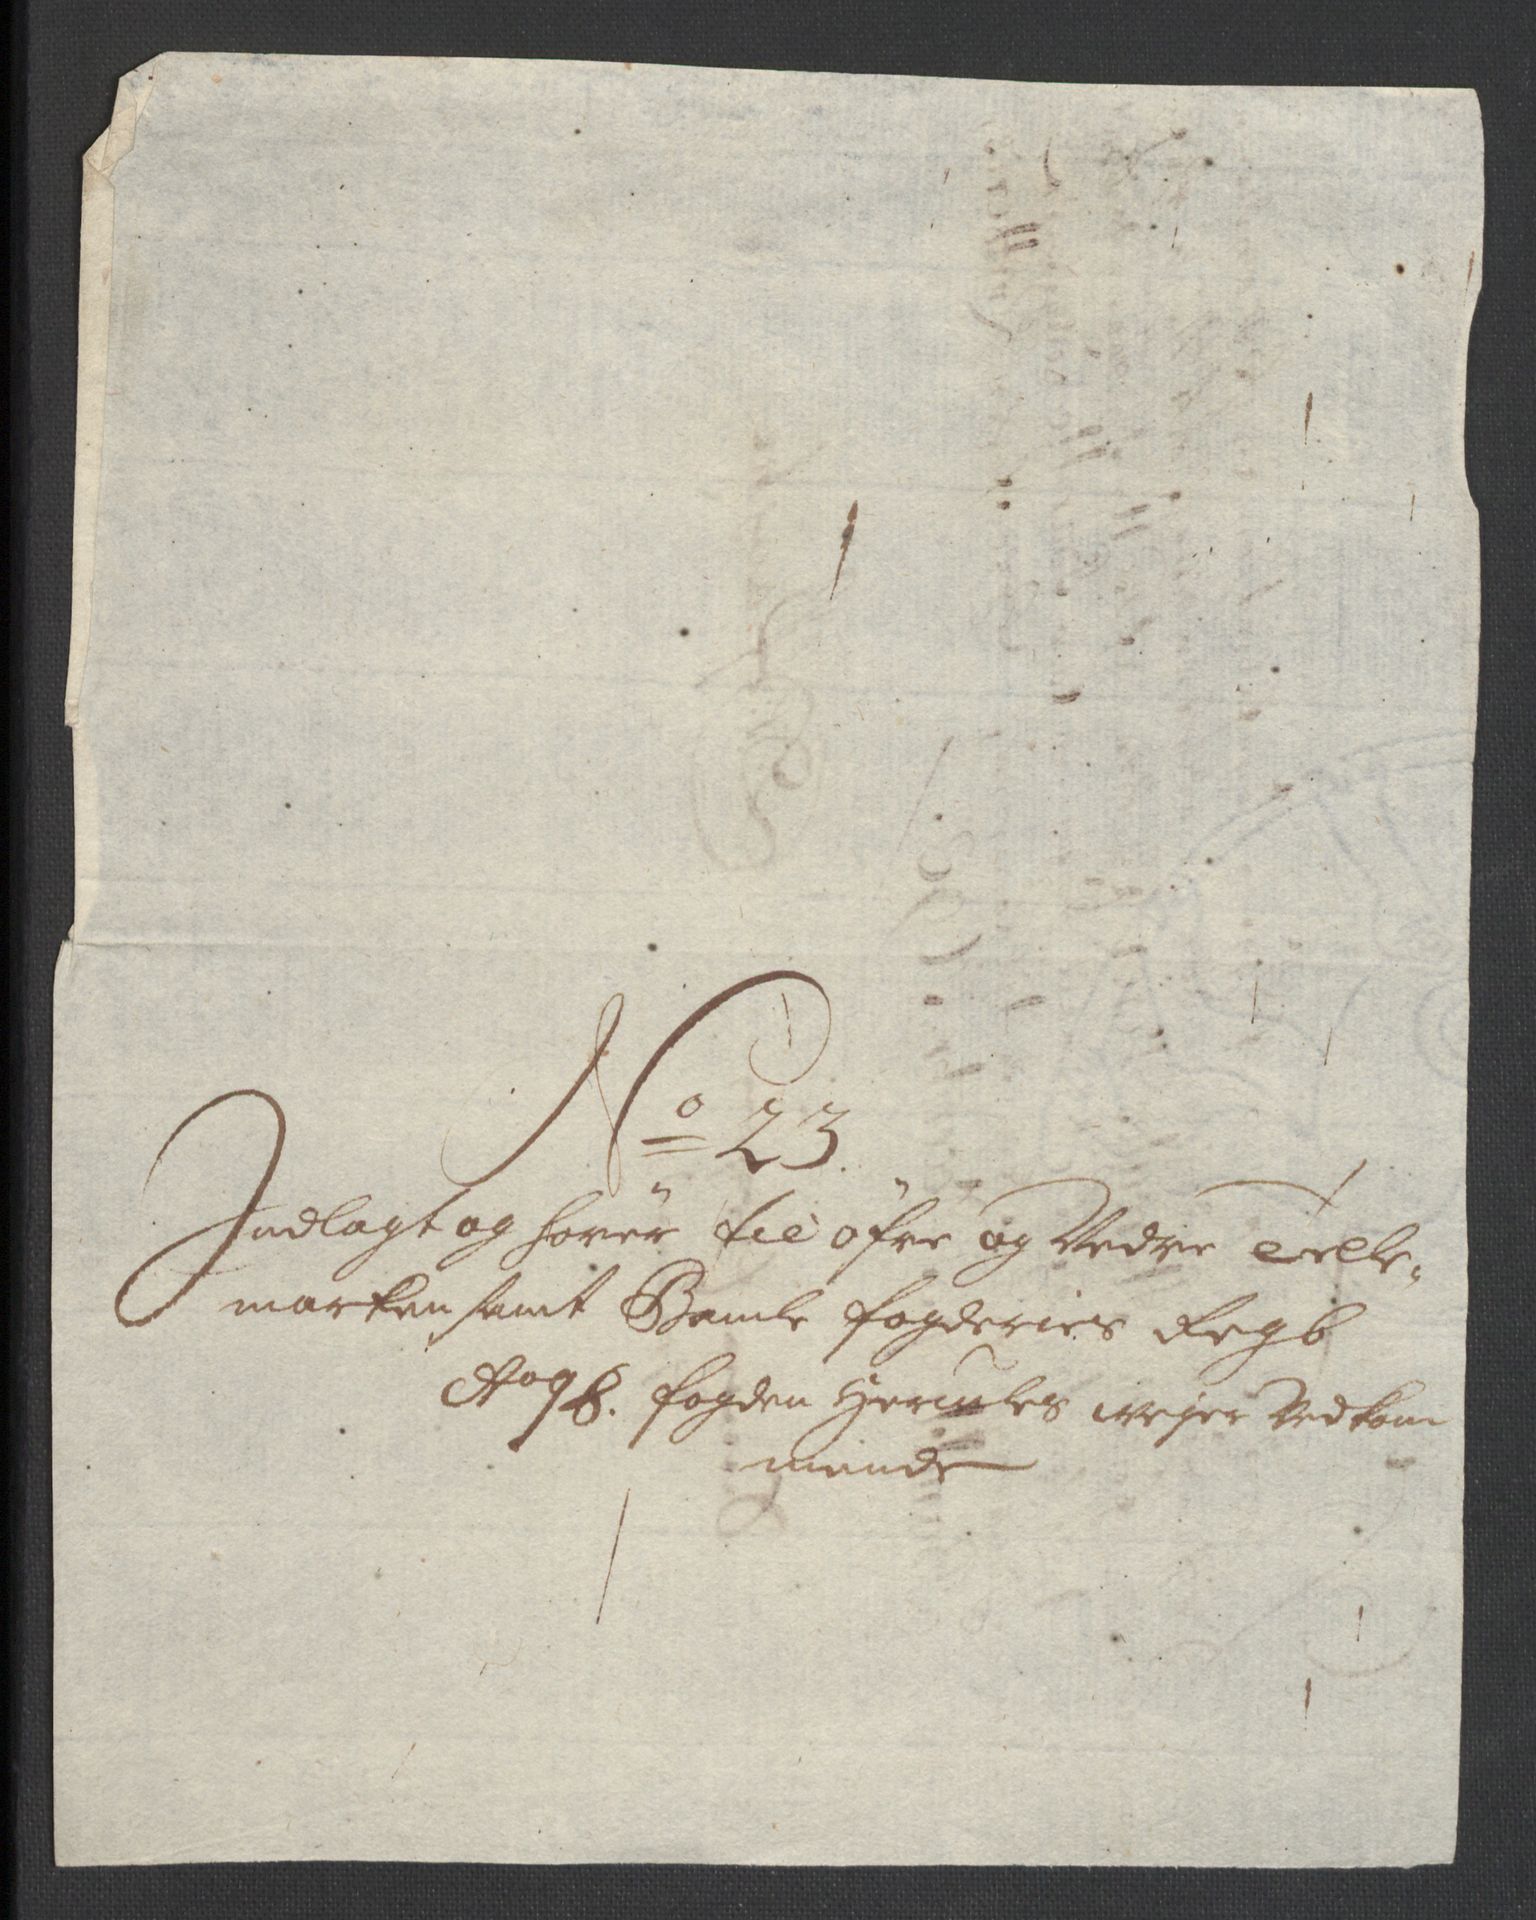 No 23.
Indlagt og hörer til öfre og Nedre Telle-
marken samt Bamle fogderies Regb
Ao 98. fogden Hercules Weyer Vedkom
mende